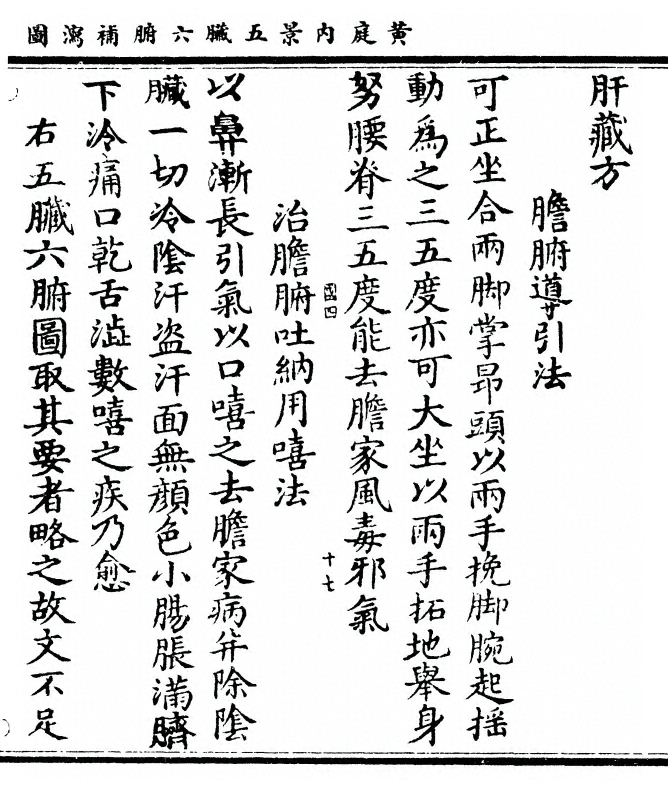 黃庭內景五臟六腑補瀉圖
肝藏方
膽腑導引法
可正坐合兩脚掌昂頭以兩手挽脚腕起揺
動爲之三五度亦可大坐以兩手拓地舉身
努腰脊三五度能去膽家風毒邪氣
國四
十七
治膽腑吐納用嘻法
以鼻漸長引氣以口嘻之去膽家病并除陰
臟一切冷陰汗盗汗面無顏色小腸脹滿臍
下冷痛口乾舌澁數嘻之疾乃愈
右五臟六腑圖取其要者略之故文不足